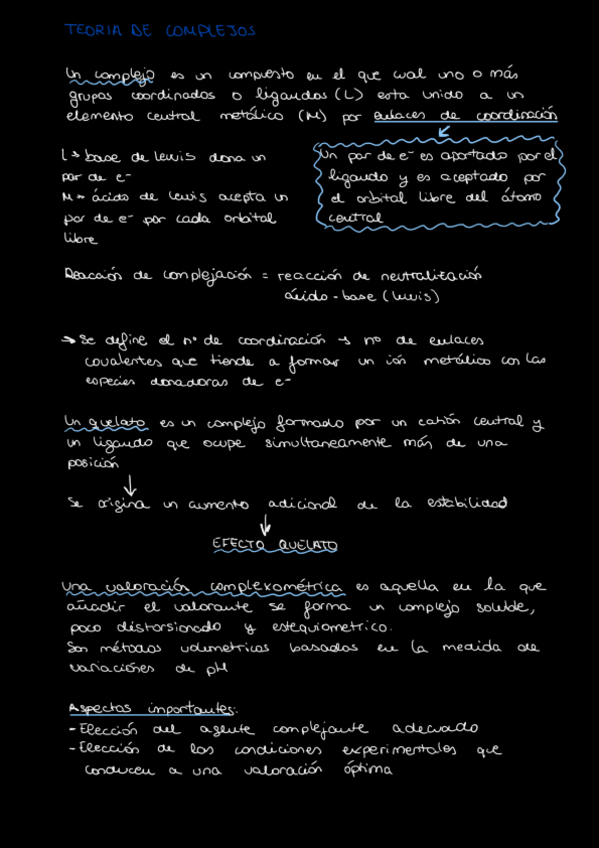 TEORIA DE COMPLEJOS
Un complejo es un compuesto en el que cual uno o más
grupos coordinados o ligandos (L) esta unido a un
elemento central metálico (M) por enlaces de coordinación
L → base de lewis dona un
par de e-
M → ácido de lewis acepta un
par de e- por cada orbital
libre
Un par de e- es aportado por el
ligando y es aceptado por
el orbital libre del átomo
central
Reacción de complejación = reacción de neutralización
ácido-base (lewis)
→ Se define el nº de coordinación → nº de enlaces
covalentes que tiende a formar un ión metálico con las
especies donadoras de e-
Un quelato es un complejo formado por un catión central y
un ligando que ocupe simultaneamente más de una
posición
Se origina un aumento adicional de la estabilidad
EFECTO QUELATO
Una valoración complexométrica es aquella en la que
añadir el valorante se forma un complejo soluble,
poco distorsionado y estequiometrico.
Son métodos volumetricos basados en la medida de
variaciónes de pH
Aspectos importantes:
- Elección del agente complejante adecuado
- Elección de las condiciones experimentales que
conducen a una valoración óptima